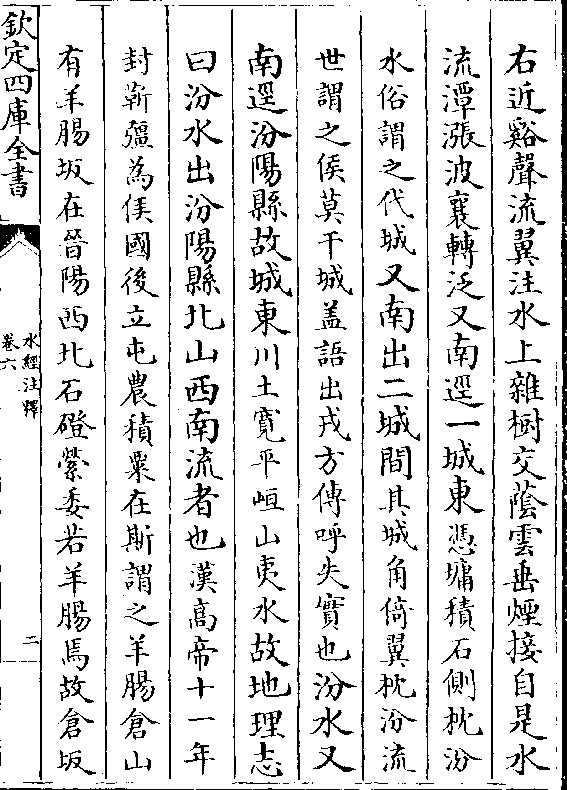 右近谿聲流翼注水上雜樹交蔭雲垂煙接自是水
流潭漲波襄轉泛又南逕一城東憑墉積石側枕汾
水俗謂之代城又南出二城間其城角倚翼枕汾流
世謂之侯莫干城盖語出戎方傳呼失實也汾水又
南逕汾陽縣故城東川土寬平峘山夷水故地理志
曰汾水出汾陽縣北山西南流者也漢髙帝十一年
封靳彊為侯國後立屯農積粟在斯謂之羊腸倉山
有羊腸坂在晉陽西北石磴縈委若羊腸焉故倉坂
欽定四庫全書
水經注釋
卷六
二